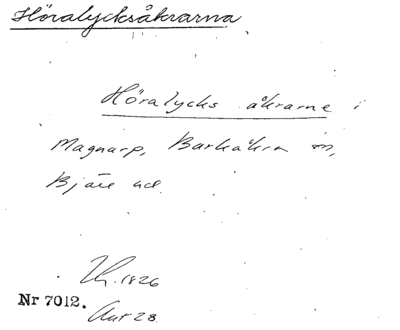 Höralycksåkrarna
Höralycks åkrarne i
Magnarp, Barkåkra sn,
Bjäre hd.
1826
Nr 7012.
28